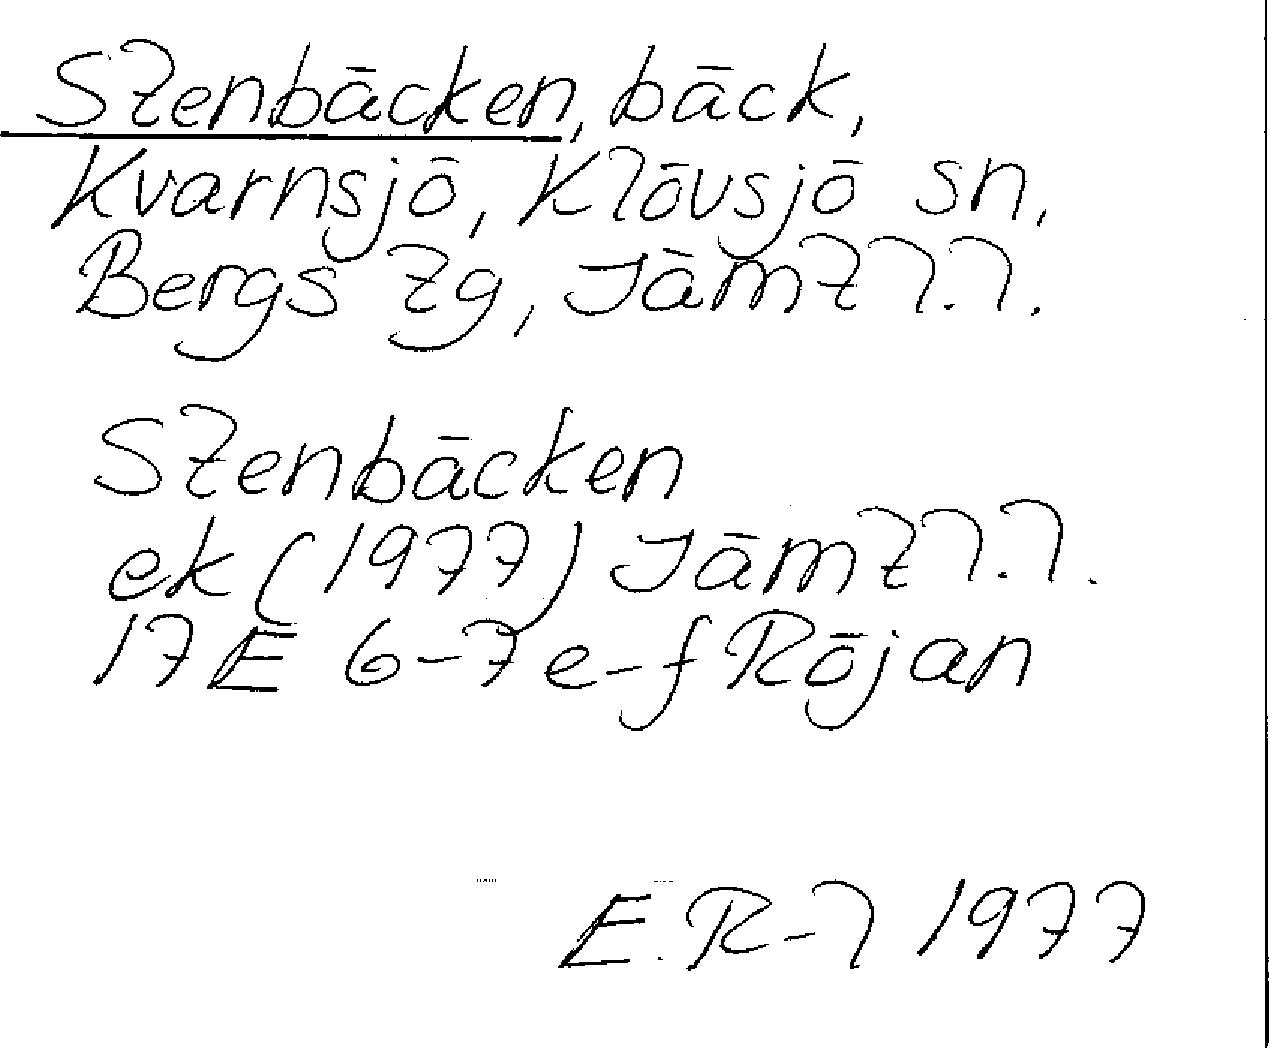 Stenbäcken, bäck,
Kvarnsjö, Klövsjö sn,
Bergs tg, Jämtl.l.
Stenbäcken
ek (1977) Jämtl.l.
17E 6-7e-f Röjan
E.R-l 1977